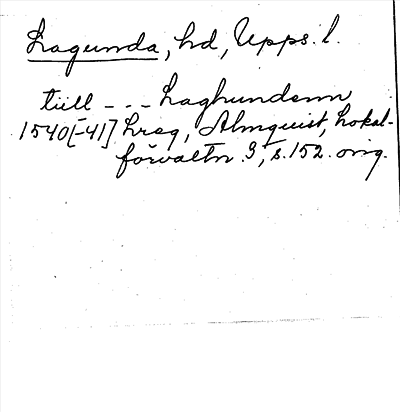 Lagunda, hd, Upps. l.
tiill - - - Laghundenn
1540[-41] hreg, Almquist, Lokal-
förvaltn. 3, s. 152. orig.